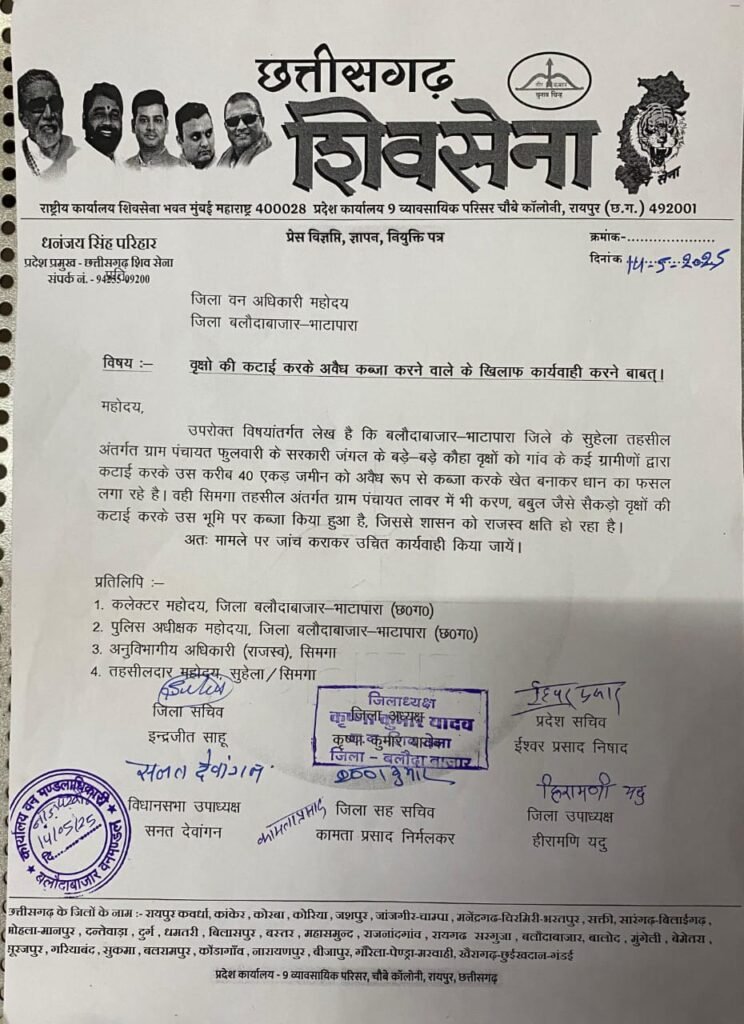 छत्तीसगढ़
शिवसेना
तीर कमान
चुनाव चिन्ह
सेना
राष्ट्रीय कार्यालय शिवसेना भवन मुंबई महाराष्ट्र 400028 प्रदेश कार्यालय 9 व्यावसायिक परिसर चौबे कॉलोनी, रायपुर (छ.ग.) 492001
प्रेस विज्ञप्ति, ज्ञापन, नियुक्ति पत्र
धनंजय सिंह परिहार
प्रदेश प्रमुख - छत्तीसगढ़ शिव सेना
संपर्क नं. - 94255-09200
प्रति,
क्रमांक-....................
दिनांक 14-5-2025
जिला वन अधिकारी महोदय
जिला बलौदाबाजार-भाटापारा
विषय :– वृक्षो की कटाई करके अवैध कब्जा करने वाले के खिलाफ कार्यवाही करने बाबत्।
महोदय,
उपरोक्त विषयांतर्गत लेख है कि बलौदाबाजार–भाटापारा जिले के सुहेला तहसील
अंतर्गत ग्राम पंचायत फुलवारी के सरकारी जंगल के बड़े–बड़े कौहा वृक्षों को गांव के कई ग्रामीणों द्वारा
कटाई करके उस करीब 40 एकड़ जमीन को अवैध रूप से कब्जा करके खेत बनाकर धान का फसल
लगा रहे है। वही सिमगा तहसील अंतर्गत ग्राम पंचायत लावर में भी करण, बबुल जैसे सैकड़ो वृक्षों की
कटाई करके उस भूमि पर कब्जा किया हुआ है, जिससे शासन को राजस्व क्षति हो रहा है।
अतः मामले पर जांच कराकर उचित कार्यवाही किया जायें।
प्रतिलिपि :–
1. कलेक्टर महोदय, जिला बलौदाबाजार–भाटापारा (छ0ग0)
2. पुलिस अधीक्षक महोदया, जिला बलौदाबाजार–भाटापारा (छ0ग0)
3. अनुविभागीय अधिकारी (राजस्व), सिमगा
4. तहसीलदार महोदय, सुहेला/सिमगा
जिला सचिव
इन्द्रजीत साहू
जिलाध्यक्ष
कृष्णा कुमार यादव
जिला - बलौदा बाजार
जिला अध्यक्ष
कृष्णा कुमार यादव
प्रदेश सचिव
ईश्वर प्रसाद निषाद
सनत देवांगन
विधानसभा उपाध्यक्ष
सनत देवांगन
कामता प्रसाद
जिला सह सचिव
कामता प्रसाद निर्मलकर
हिरामणी यदु
जिला उपाध्यक्ष
हीरामणि यदु
कार्यालय वन मण्डलाधिकारी
14/05/25
दि.
बलौदाबाजार वनमण्डल
छत्तीसगढ़ के जिलों के नाम :- रायपुर कवर्धा, कांकेर, कोरबा, कोरिया, जशपुर, जांजगीर-चाम्पा, मनेंद्रगढ-चिरमिरी-भरतपुर, सक्ती, सारंगढ-बिलाईगढ़,
मोहला-मानपुर, दन्तेवाड़ा, दुर्ग, धमतरी, बिलासपुर, बस्तर, महासमुन्द, राजनांदगांव, रायगढ सरगुजा, बलौदाबाजार, बालोद, मुंगेली, बेमेतरा,
सूरजपुर, गरियाबंद, सुकमा, बलरामपुर, कोंडागाँव, नारायणपुर, बीजापुर, गौरेला-पेण्ड्रा-मरवाही, खैरागढ़-छुईखदान-गंडई
प्रदेश कार्यालय - 9 व्यावसायिक परिसर, चौबे कॉलोनी, रायपुर, छत्तीसगढ़